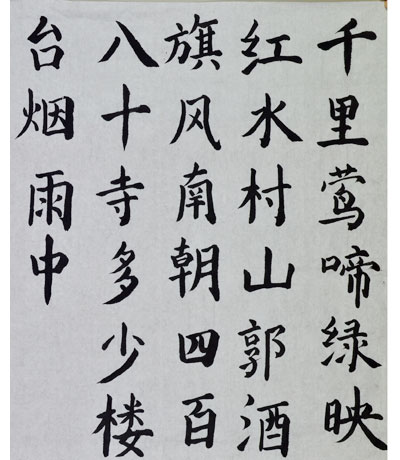 千里莺啼绿映
红水村山郭酒
旗风南朝四百
八十寺多少楼
台烟雨中